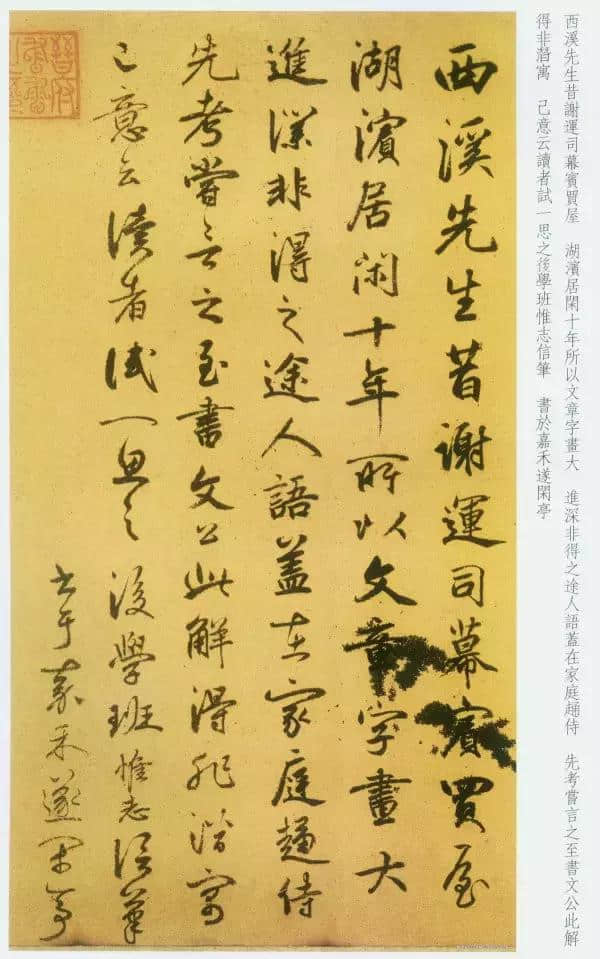 西溪先生昔謝運司幕賓買屋　湖濱居閑十年所以文章字畫大　進深非得之途人語蓋在家庭趨侍　先考嘗言之至書文公此解
得非潜寓　己意云讀者試一思之後學班惟志信筆　書於嘉禾遂閑亭
西溪先生昔謝運司幕賓買屋
湖濱居閑十年所以文章字畫大
進深非得之途人語蓋在家庭趨侍
先考嘗言之至書文公此解得非潜寓
己意云讀者試一思之後學班惟志信筆
書于嘉禾遂閑亭